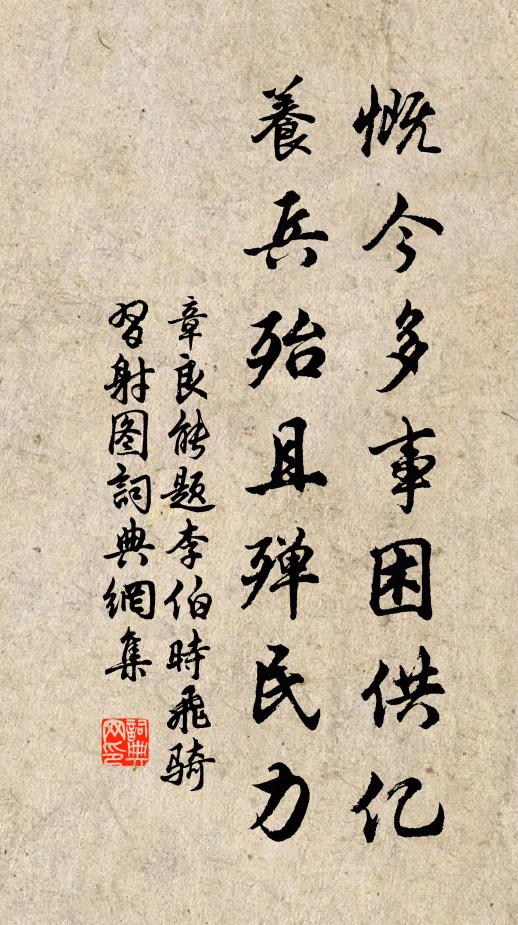 慨今多事困供亿
養兵殆且殫民力
章良能題李伯時飛騎
習射图詞典網集
詞典网印